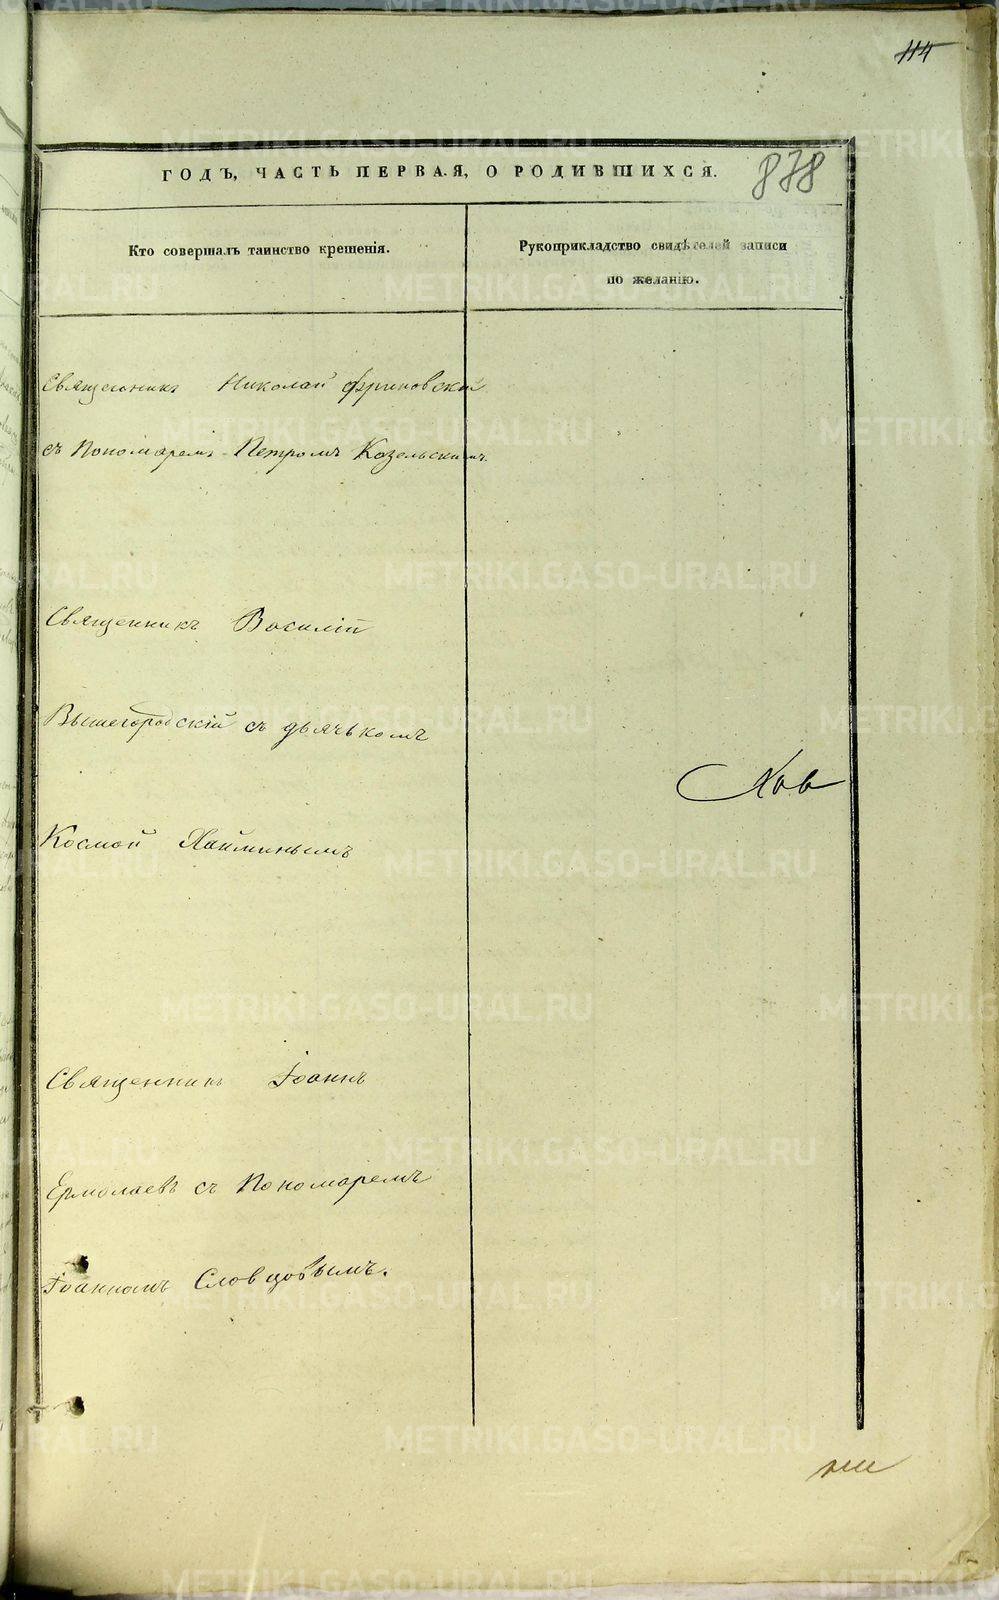 114
ГОДЪ, ЧАСТЬ ПЕРВАЯ, О РОДИВШИХСЯ.
878
Кто совершалъ таинство крещенія.
Рукоприкладство свидѣтелей записи
по желанію.
Священникъ Николай Фриновскій
съ Пономаремъ Петромъ Козельскимъ.
Священникъ Василій
Вышегородскій съ дьячькомъ
Космой Хайминымъ
Священникъ Іоаннъ
Ермолаевъ съ Пономаремъ
Іоанномъ Словцовымъ.
METRIKI.GASO-URAL.RU